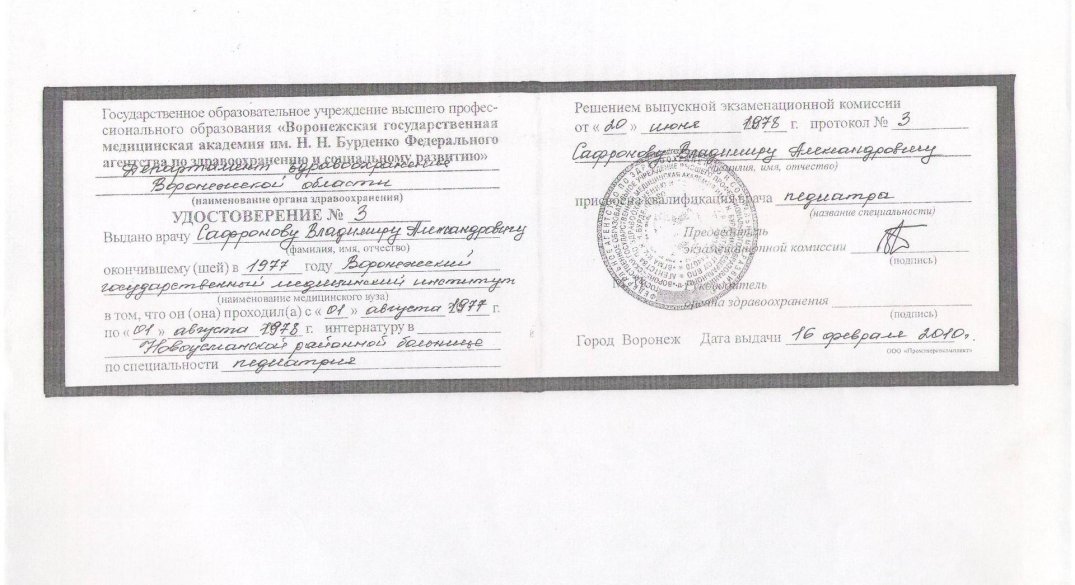 Государственное образовательное учреждение высшего профес-
сионального образования «Воронежская государственная
медицинская академия им. Н. Н. Бурденко Федерального
агентства по здравоохранению и социальному развитию»
Департамент здравоохранения
Воронежской области
(наименование органа здравоохранения)
УДОСТОВЕРЕНИЕ № 3
Выдано врачу Сафронову Владимиру Александровичу
(фамилия, имя, отчество)
окончившему (шей) в 1977 году Воронежский
государственный медицинский институт
(наименование медицинского вуза)
в том, что он (она) проходил(а) с « 01 » августа 1977 г.
по « 01 » августа 1978 г. интернатуру в
Новоусманской районной больнице
по специальности педиатрия
Решением выпускной экзаменационной комиссии
от « 20 » июня 1978 г. протокол № 3
Сафронову Владимиру Александровичу
(фамилия, имя, отчество)
присвоена квалификация врача педиатра
(название специальности)
Председатель
экзаменационной комиссии
(подпись)
Руководитель
органа здравоохранения
(подпись)
Город Воронеж Дата выдачи 16 февраля 2010г.